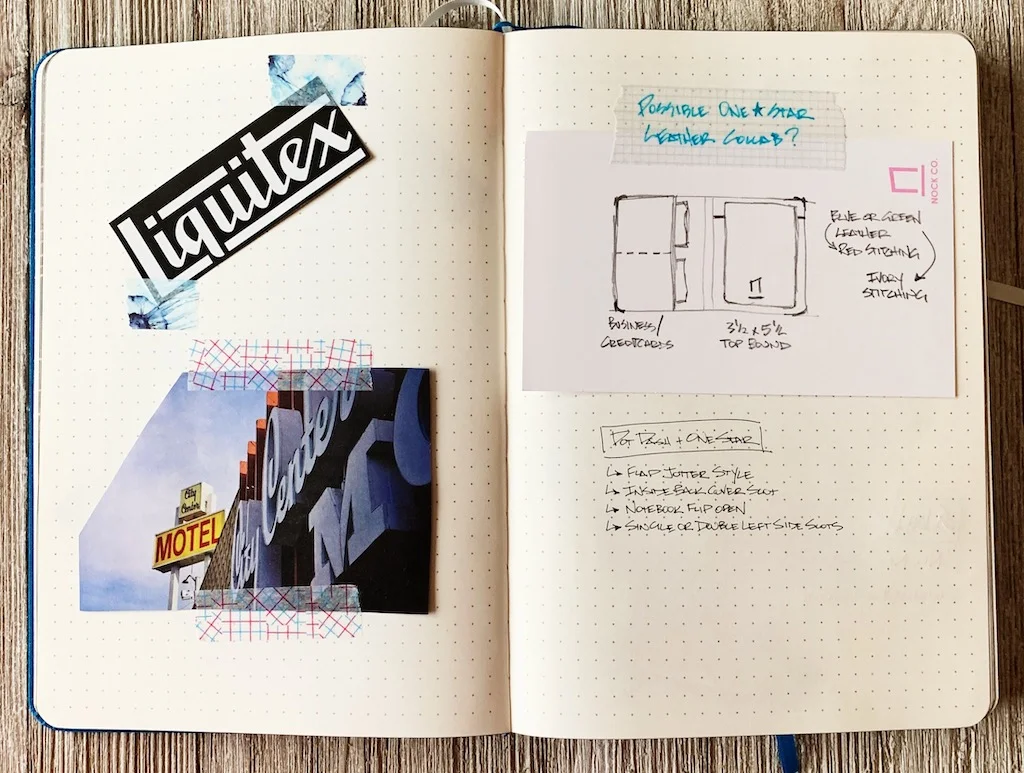 Liquitex
City
Center
MOTEL
City Center
M
POSSIBLE ONE★STAR
LEATHER COLLAB?
NOCK CO.
BLUE OR GREEN
LEATHER
RED STITCHING
IVORY
STITCHING
BUSINESS/
CREDIT CARDS
3½ x 5½
TOP BOUND
DOT DASH + ONE STAR
↳ FLAP JOTTER STYLE
↳ INSIDE BACK COVER SLOT
↳ NOTEBOOK FLIP OPEN
↳ SINGLE OR DOUBLE LEFT SIDE SLOTS